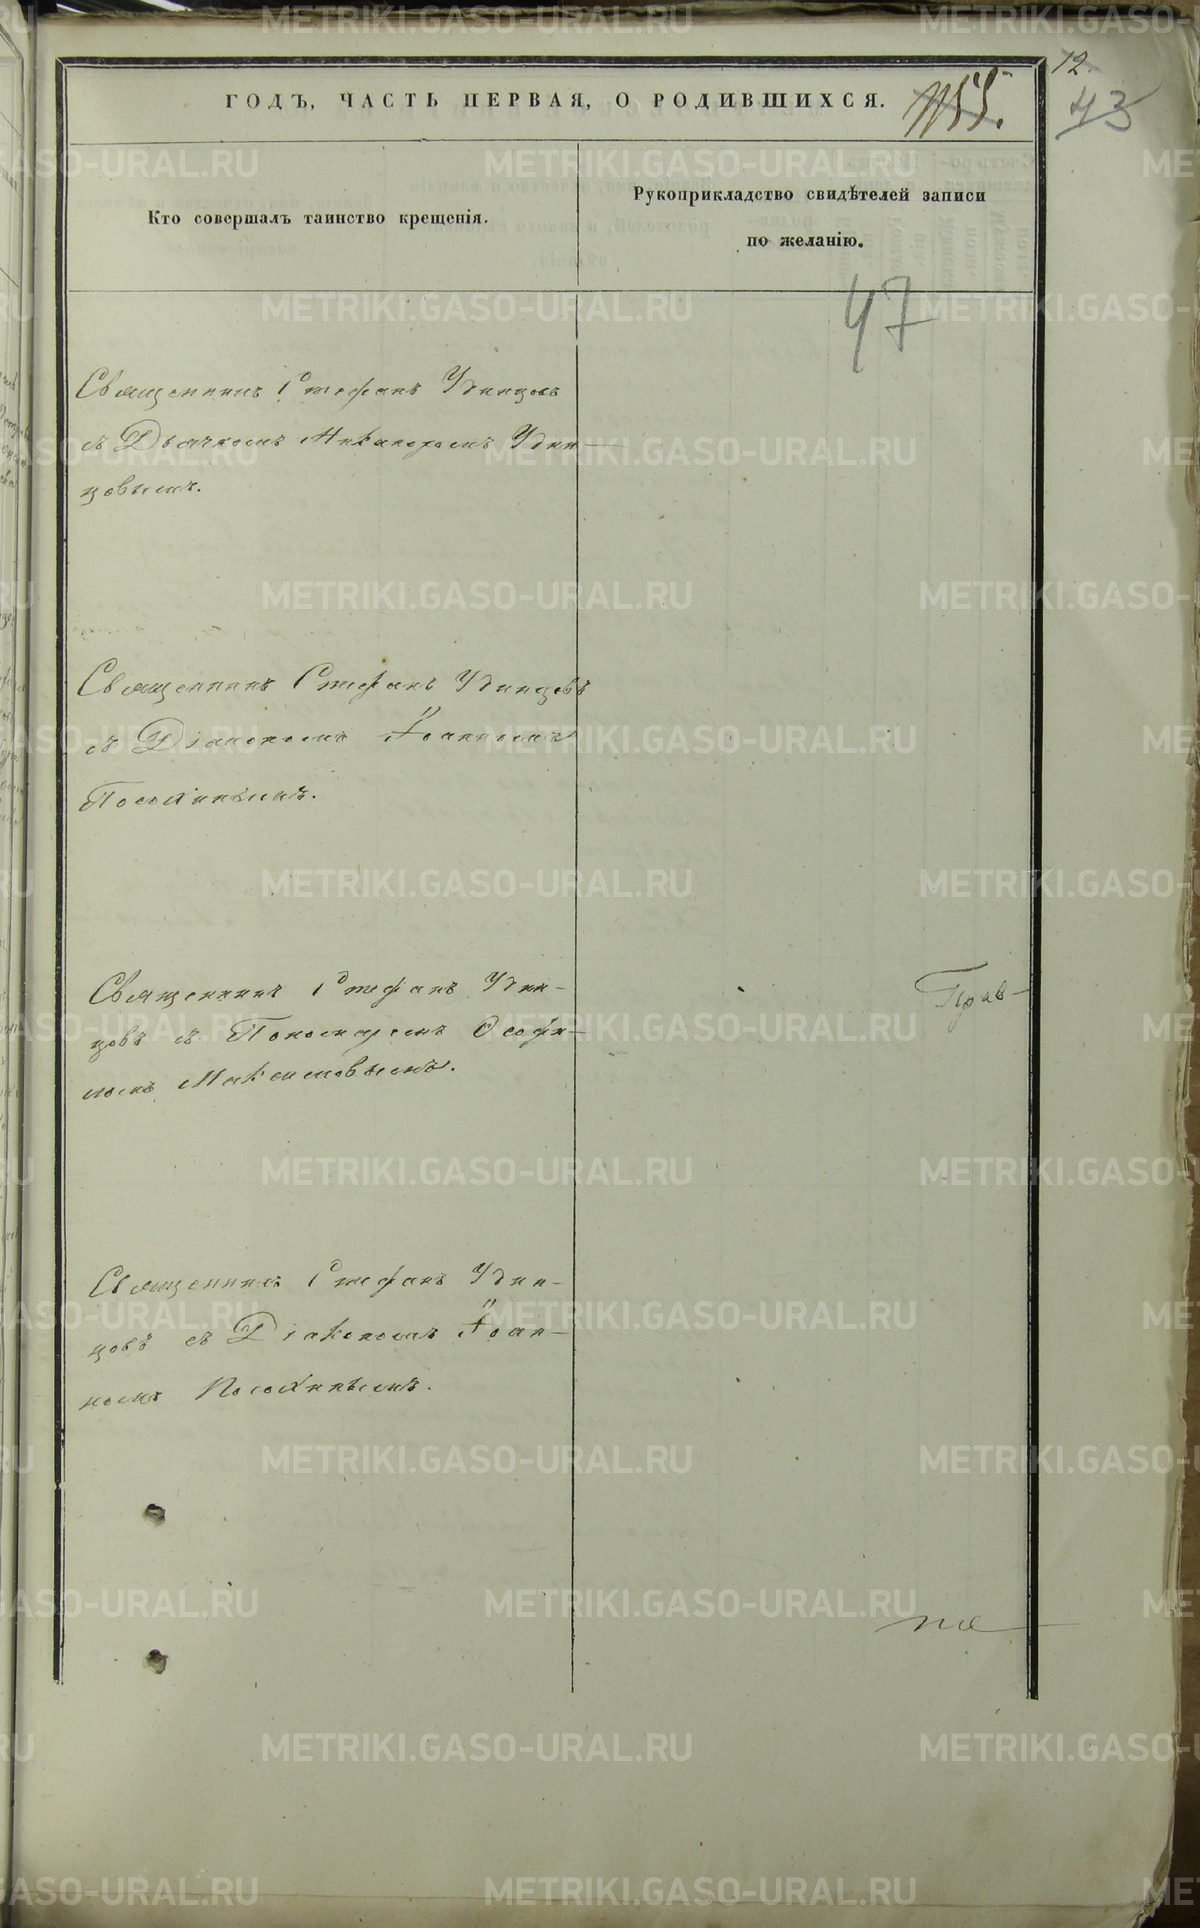 12.
43
ГОДЪ, ЧАСТЬ ПЕРВАЯ, О РОДИВШИХСЯ.
Кто совершалъ таинство крещенія.
Рукоприкладство свидѣтелей записи
по желанію.
47
Священникъ Стефанъ Удинцовъ
съ Дьячкомъ Никаноромъ Удин-
цовымъ.
Священникъ Стефанъ Удинцовъ
съ Діакономъ Іоанномъ
Посохинымъ.
Священникъ Стефанъ Удин-
цовъ съ Пономаремъ Ѳеофи-
ломъ Максимовымъ.
Прав-
Священникъ Стефанъ Удин-
цовъ съ Діакономъ Іоан-
номъ Посохинымъ.
METRIKI.GASO-URAL.RU